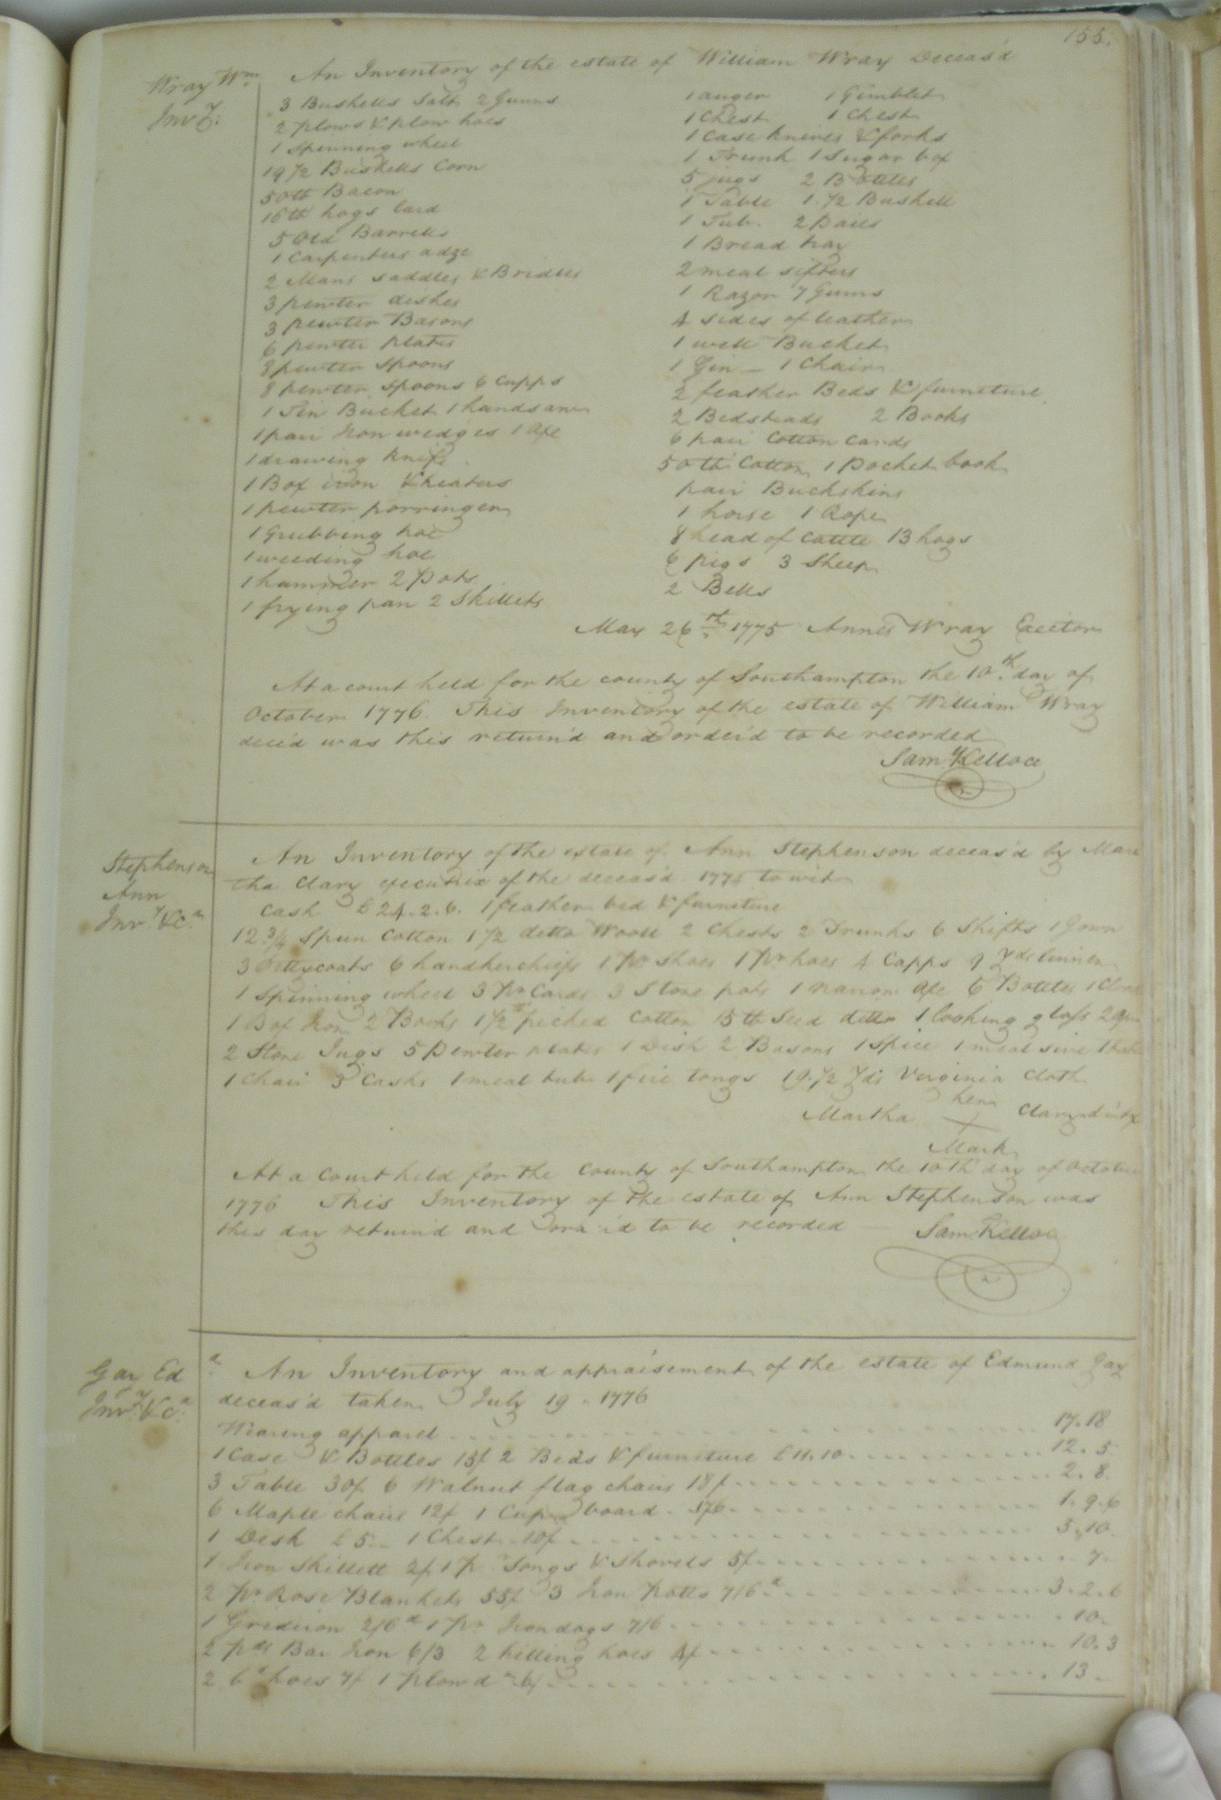 155.
Wray Wm
Invy:
An Inventory of the estate of William Wray Deceas'd
3 Bushells Salt 2 Gums
2 plows & plow hoes
1 Spinning wheel
19 1/2 Bushells Corn
50 lb Bacon
16 lb hogs lard
5 Old Barrells
1 Carpenters adze
2 Mans Saddles & Bridles
3 pewter dishes
3 pewter Basons
6 pewter plates
8 pewter Spoons
8 pewter Spoons 6 Cupps
1 Tin Bucket 1 handsaw
1 pair Iron wedges 1 Axe
1 drawing knife
1 Box iron & heaters
1 pewter porringer
1 Grubbing hoe
1 weeding hoe
1 hammer 2 Pots
1 frying pan 2 Skillets
1 auger 1 Gimblet
1 Chest 1 Chest
1 Case knives & forks
1 Trunk 1 Sugar box
5 jugs 2 Bottles
1 Table 1. 1/2 Bushell
1 Tub. 2 Pails
1 Bread tray
2 meal sifters
1 Razor 7 Gums
4 sides of leather
1 well Bucket
1 Gin — 1 Chair
2 feather Beds & furniture
2 Bedsteads 2 Books
6 pair Cotton Cards
50 lb Cotton 1 Pocket book
pair Buckskins
1 horse 1 Rope
8 head of Cattle 13 hogs
6 pigs 3 Sheep
2 Bells
May 26th 1775 Annes Wray Exectors
At a court held for the county of Southampton the 10th day of
October 1776. This Inventory of the estate of William Wray
dece'd was this return'd and order'd to be recorded
Saml Kelloe
Stephenson
Ann
Invy &ca
An Inventory of the estate of Ann Stephenson deceas'd by Mar
tha Clary executrix of the deceas'd 1775 to wit
Cash £24.2.6. 1 feather bed & furniture
12 3/4 Spun Cotton 1 1/2 ditto Wooll 2 Chests 2 Trunks 6 Shifts 1 Gown
3 Pettycoats 6 handkerchiefs 1 pr shoes 1 pr hoes 4 Capps 9 yds linnen
1 Spinning wheel 3 pr Cards 3 Stone pots 1 narrow Axe 6 Bottles
1 Box Iron 2 Books 1 1/2 lb picked Cotton 15 lb Seed ditto 1 looking glass
2 Stone Jugs 5 Pewter plates 1 Dish 2 Basons 1 Spice 1 meal sive
1 Chair 3 Casks 1 meal tub 1 fire tongs 19. 1/2 Yds Virginia Cloth
Martha her Clary
X
Mark
At a Court held for the County of Southampton the 10th day of October
1776 This Inventory of the estate of Ann Stephenson was
this day return'd and ord'd to be recorded — Sam Kelloe
Gay Ed
Invy &ca
An Inventory and appraisement of the estate of Edmund Gay
deceas'd taken July 19. 1776
Wearing apparel 17.18
1 Case & Bottles 15/ 2 Beds & furniture £11.10 12.5
3 Table 30/ 6 Walnut flag chairs 18/ 2.8.
6 Maple chairs 12/ 1 Cupboard 17/6 1.9.6
1 Desk £5 1 Chest 10/ 5.10.
1 Iron Skillett 2/ 1 pr Tongs & Shovels 5/ 7
2 pr Rose Blankets 55/ 3 Iron Potts 7/6 3.2.6
1 Gridiron 2/6 1 pr Irondogs 7/6 10.
2 pds Bar Iron 6/3 2 hilling hoes 4/ 10.3
2 bd hoes 7/ 1 plow do 6/ 13